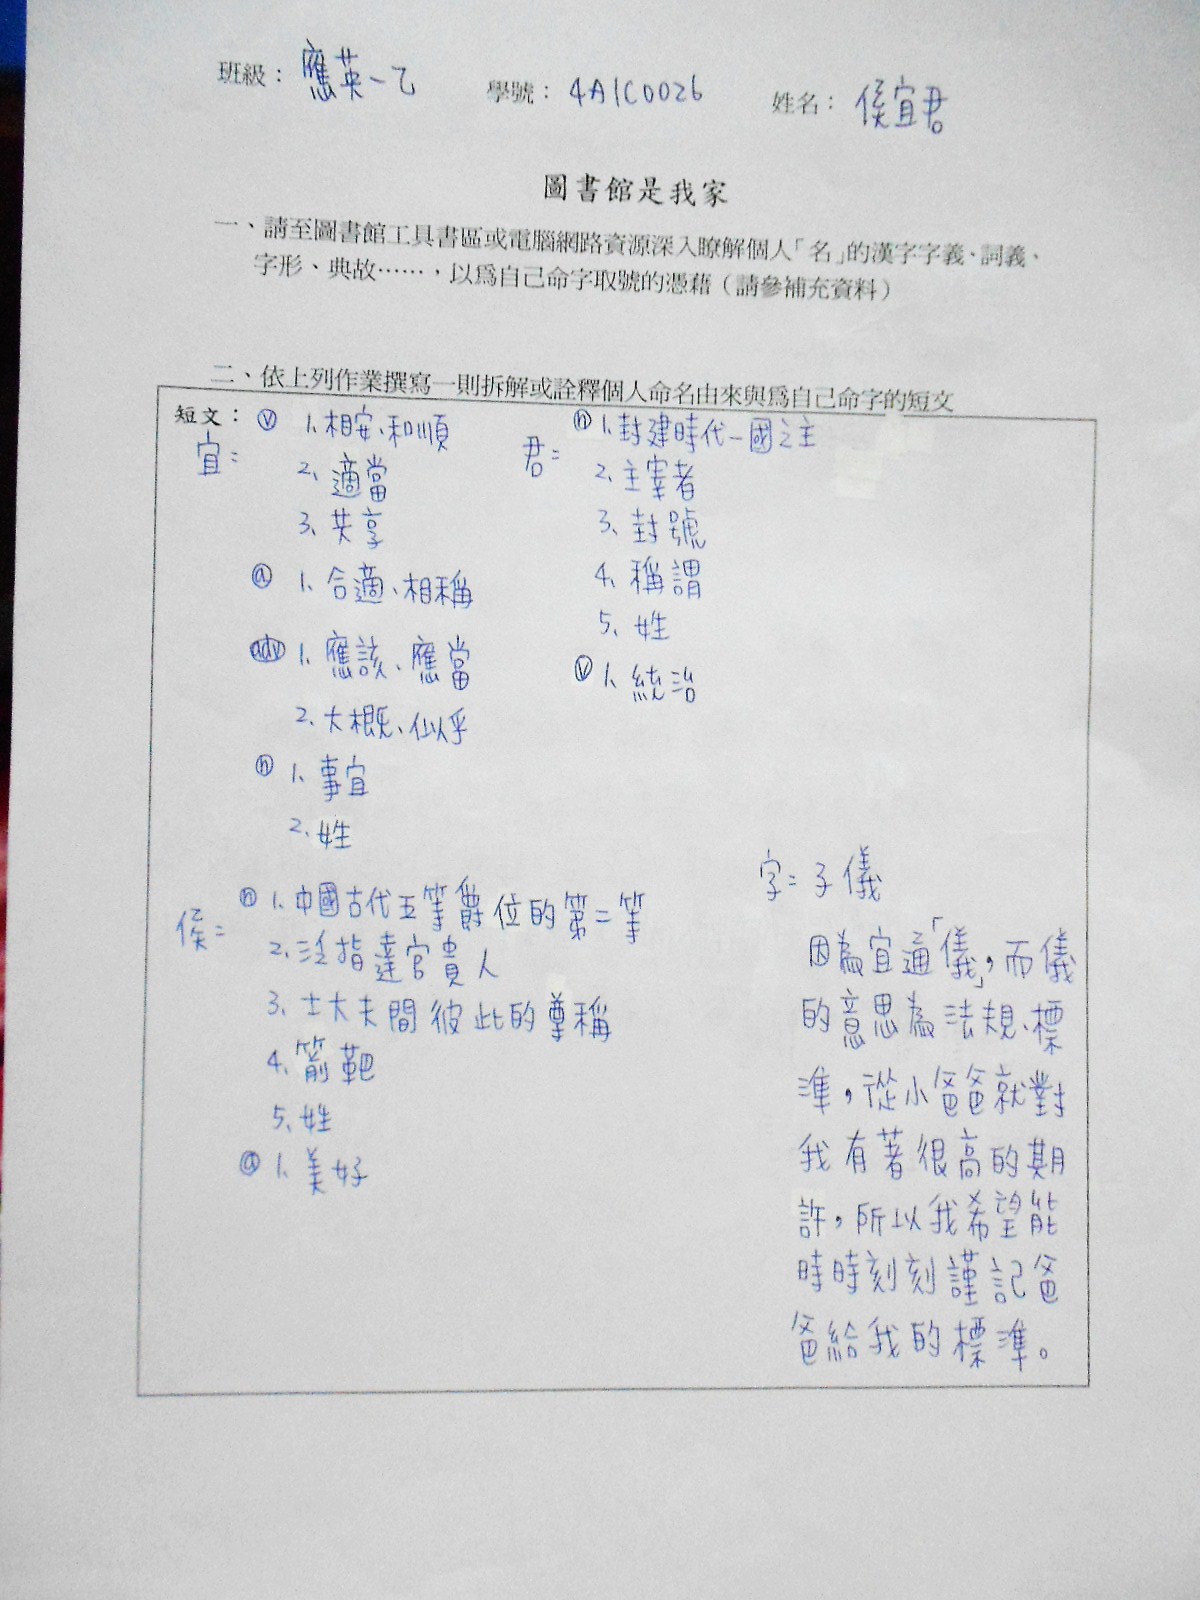 班級：應英一乙 學號：4A1C0026 姓名：侯宜君
圖書館是我家
一、請至圖書館工具書區或電腦網路資源深入瞭解個人「名」的漢字字義、詞義、
字形、典故……，以爲自己命字取號的憑藉（請參補充資料）
二、依上列作業撰寫一則拆解或詮釋個人命名由來與爲自己命字的短文
短文：
宜= ⓥ 1、相安、和順
2、適當
3、共享
ⓐ 1、合適、相稱
adv 1、應該、應當
2、大概、似乎
ⓝ 1、事宜
2、姓
君= ⓝ 1、封建時代一國之主
2、主宰者
3、封號
4、稱謂
5、姓
ⓥ 1、統治
侯= ⓝ 1、中國古代五等爵位的第二等
2、泛指達官貴人
3、士大夫間彼此的尊稱
4、箭靶
5、姓
ⓐ 1、美好
字=子儀
因為宜通「儀」，而儀
的意思為法規、標
準，從小爸爸就對
我有著很高的期
許，所以我希望能
時時刻刻謹記爸
爸給我的標準。